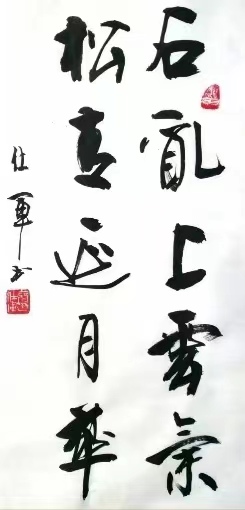 石亂上雲氣
松青延月華
仕軍书